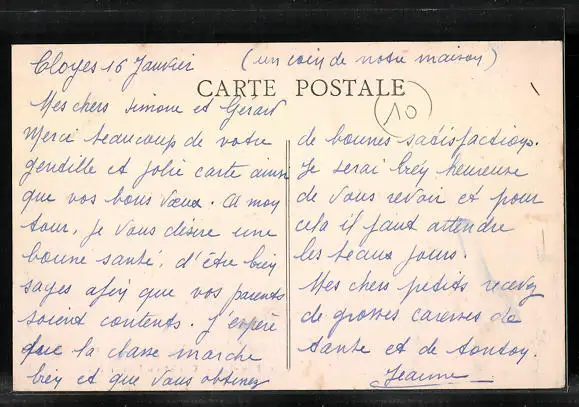 Cloyes 16 Janvier (un coin de notre maison)
CARTE POSTALE
10
Mes chers Simone et Gerard
Merci beaucoup de votre
gentille et jolie carte ainsi
que vos bons vœux. A mon
tour, je vous désire une
bonne santé, d'être bien
sages afin que vos parents
soient contents. J'espère
que la classe marche
bien et que vous obtenez
de bonnes satisfactions.
Je serai bien heureuse
de vous revoir et pour
cela il faut attendre
les beaux jours.
Mes chers petits recevez
de grosses caresses de
tante et de tonton.
Jeanne